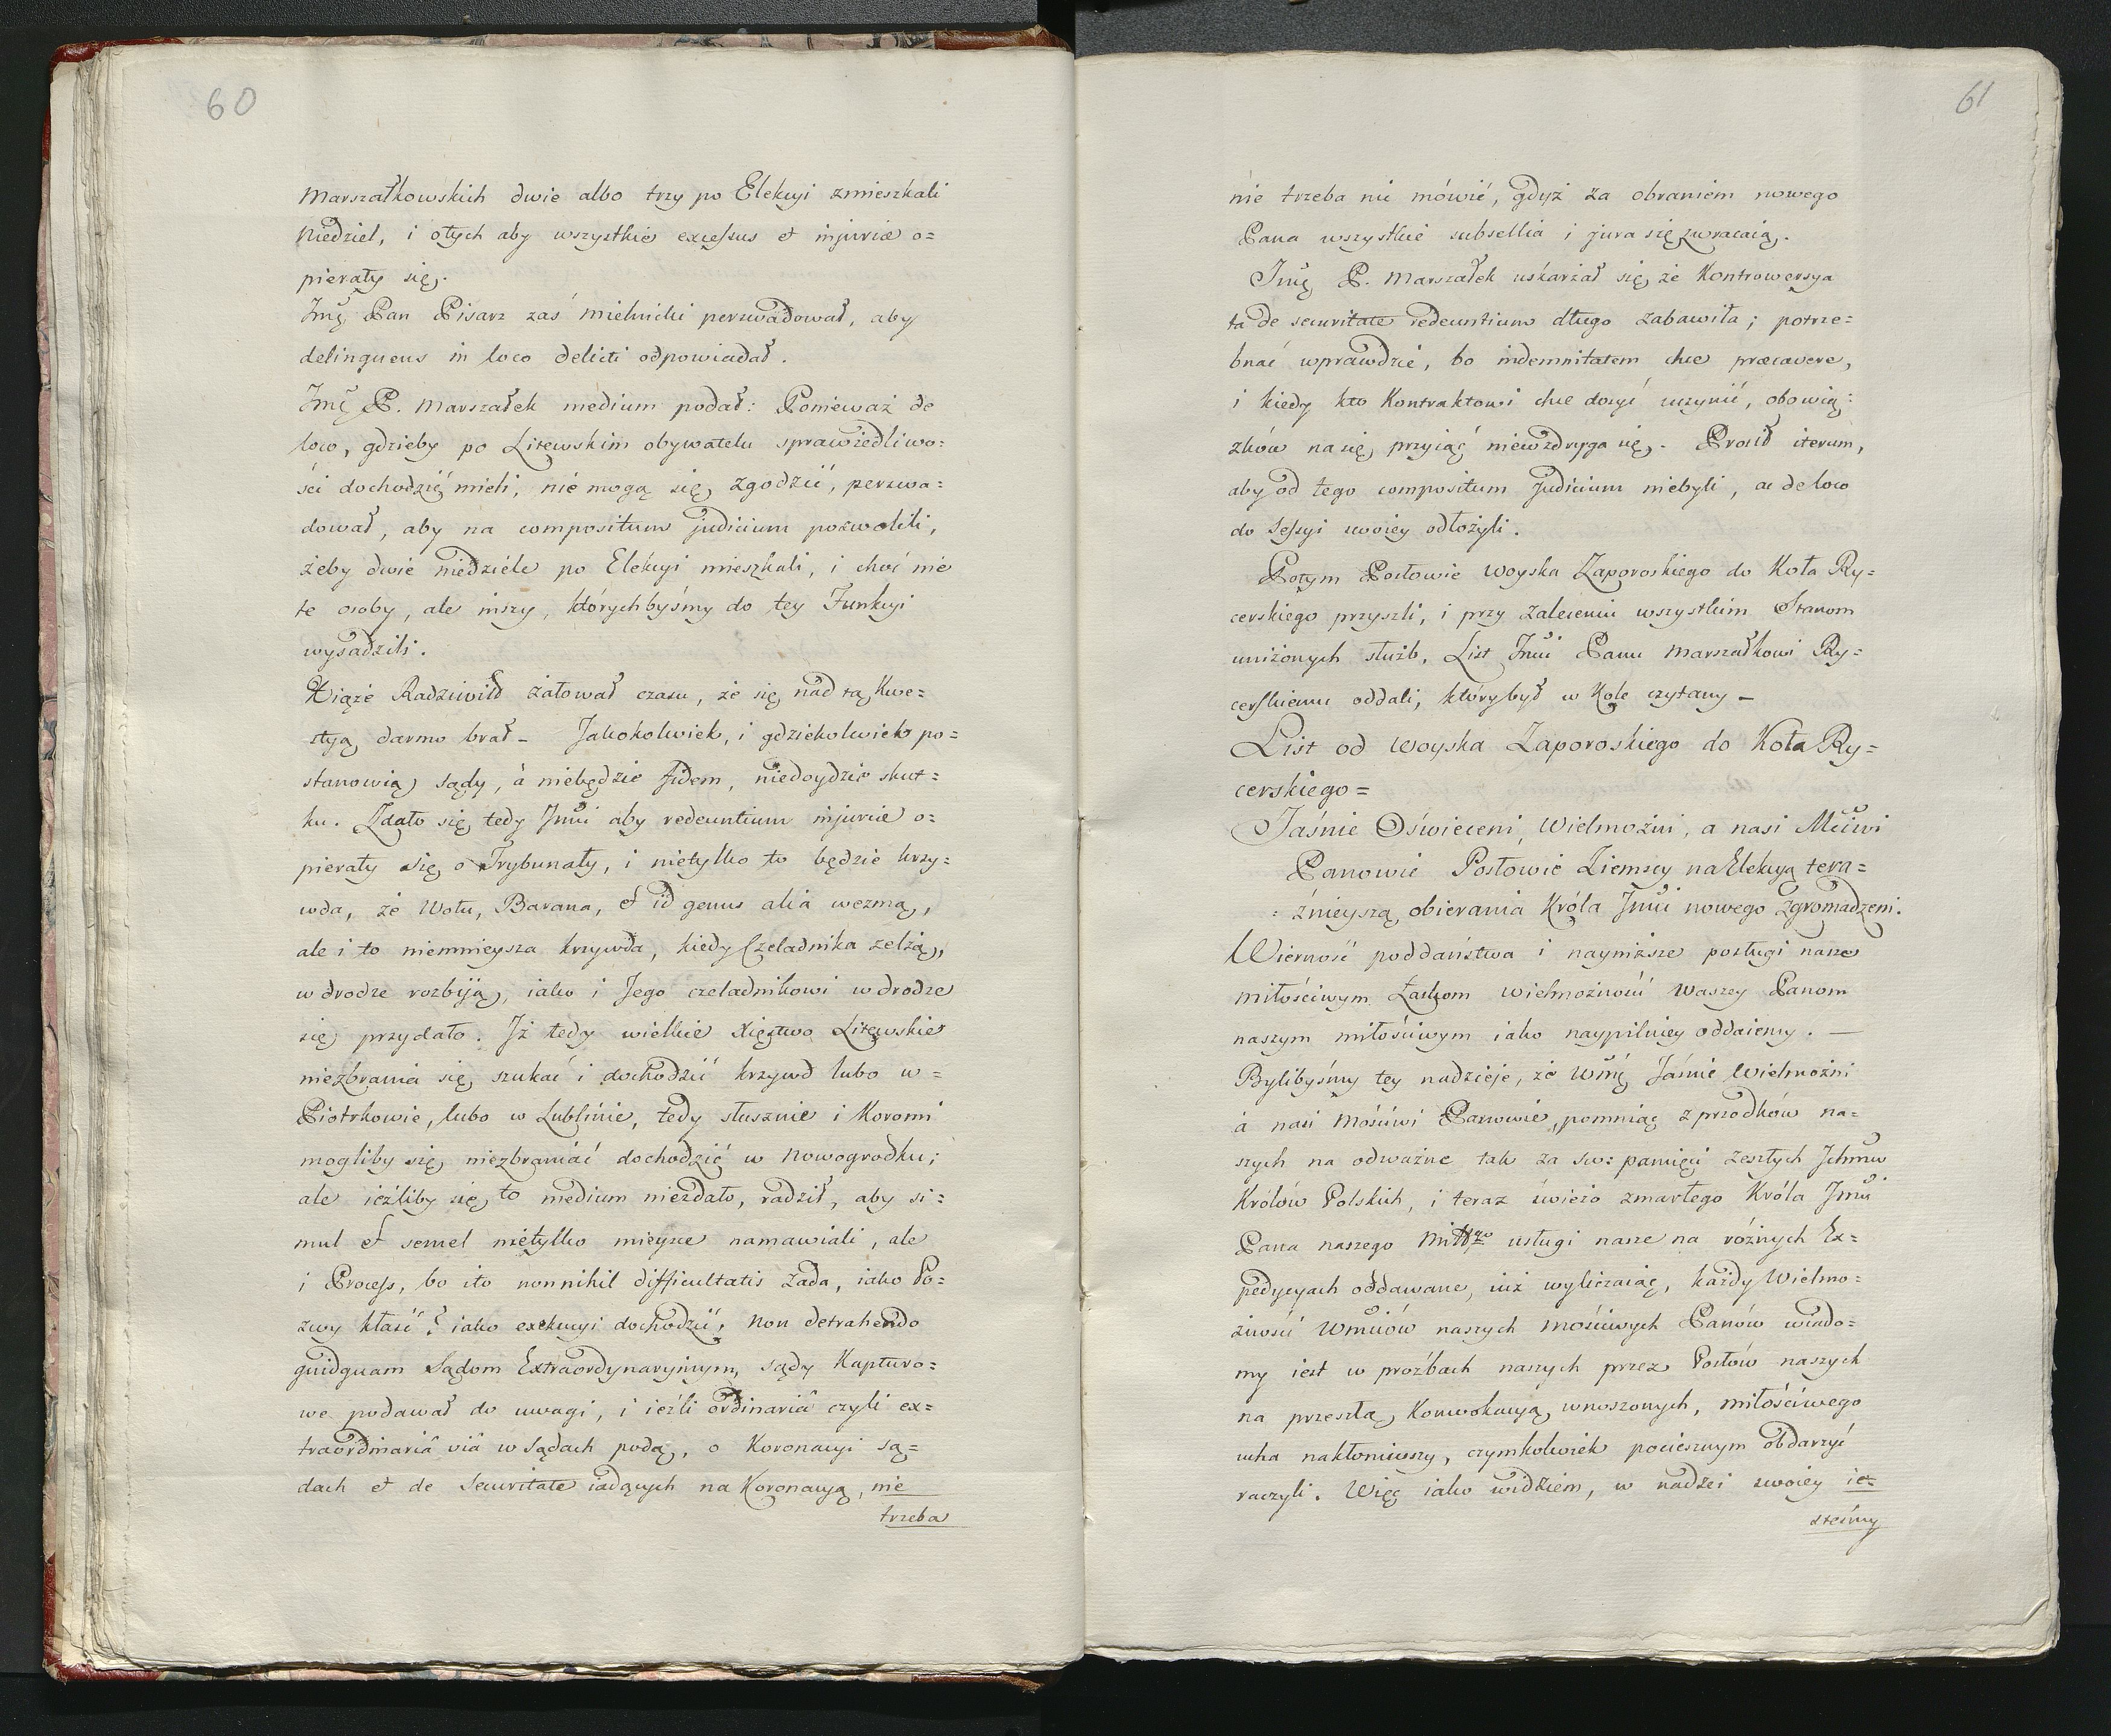 60
Marszałkowskich dwie albo trzy po Elekcyi zmieszkali
Niedziel, i otych aby wszystkie excessus et injuriæ o=
pierały się.
Jmć Pan Pisarz zaś Mielnicki perswadował, aby
delinquens in loco delicti odpowiadał.
Jmć P. Marszałek medium podał: Ponieważ de
loco, gdzieby po Litewskim obywatelu sprawiedliwo=
ści dochodzić mieli, nie mogą się zgodzić, perswa=
dował, aby na compositum judicium pozwolili,
żeby dwie niedziele po Elekcyi mieszkali, i choć nie
te osoby, ale inszy, którychbyśmy do tey Funkcyi
wysadzili.
Xiąże Radziwiłł żałował czasu, że się nad tą Kwe=
styą darmo brał – Jakokolwiek, i gdziekolwiek po=
stanowią sądy, á niebędzie fidem, niedoydzie skut=
ku. Zdało się tedy Jmci aby redeuntium injuriæ o=
pierały się o Trybunały, i nietylko to będzie krzy=
wda, że Wołu, Barana, et id genus alia wezmą,
ale i to niemnieysza krzywda, kiedy Czeladnika zelżą,
w drodze rozbiją, iako i Jego czeladnikowi w drodze
się przydało. Jż tedy wielkie Xięstwo Litewskie
niezbrania się szukać i dochodzić krzywd lubo w=
Piotrkowie, lubo w Lublinie, tedy słusznie i Koronni
mogliby się niezbraniać dochodzić w Nowogrodku;
ale ieźliby się to medium niezdało, radził, aby si=
mul et semel nietylko mieysce namawiali, ale
i Process, bo ito nonnihil difficultatis zada, iako Po=
zwy kłaść? iako exekucyi dochodzić, non detrahendo
quidquam Sądom Extraordynaryinym, sądy Kapturo=
we podawał do uwagi, i ieźli ordinariâ czyli ex=
traordinariâ viâ w Sądach podą, o Koronacyi są=
dach et de Securitate iadących na Koronacyą, nie
trzeba
61
nie trzeba nic mówić, gdyż za obraniem nowego
Pana wszystkie subsellia i jura się zwracaią.
Jmć P. Marszałek uskarżał się, że Kontrowersya
ta de securitate redeuntium długo zabawiła; potrze=
bnać wprawdzie, bo indemnitatem chce præcavere,
i kiedy kto Kontraktowi chce dosyć uczynić, obowią=
zków na się przyiąć niewzdryga się. Prosił iterum,
aby od tego compositum judicium niebyli, ac de loco
do Sessyi swoiey odłożyli.
Potym Posłowie woyska Zaporoskiego do Koła Ry=
cerskiego przyszli, i przy zaleceniu wszystkim Stanom
uniżonych służb, List Jmci Panu Marszałkowi Ry=
cerskiemu oddali, który był w Kole czytany –
List od woyska Zaporoskiego do Koła Ry=
cerskiego =
Jaśnie Oświeceni, Wielmożni, a nasi Mciwi
Panowie Posłowie Ziemscy na Elekcyą tera=
= źnieyszą obierania Króla Jmci nowego zgromadzeni.
Wierność poddaństwa i nayniższe posługi nasze
miłościwym Łaskom wielmożność Waszey Panom
naszym miłościwym iako naypilniey oddaiemy. —
Bylibyśmy tey nadzieje, że Wmć Jaśnie Wielmożni
á nasi Mościwi Panowie, pomniąc z przodków na=
szych na odważne tak za św: pamięci zeszłych Jchmw
Królów Polskich, i teraz świeżo zmarłego Króla Jmci
Pana naszego Miłłgo usługi nasze na różnych Ex=
pedycyach oddawane, iuż wyliczaiąc, każdy Wielmo=
żność Wmciów naszych Mościwych Panów wiado=
my iest w prożbach naszych przez Posłów naszych
na przeszłą Konwokacyą wnoszonych, miłościwego
ucha nakłoniwszy, czymkolwiek pociesznym obdarzyć
raczyli. Więc iako widziem, w nadzei swoiey ie=
steśmy